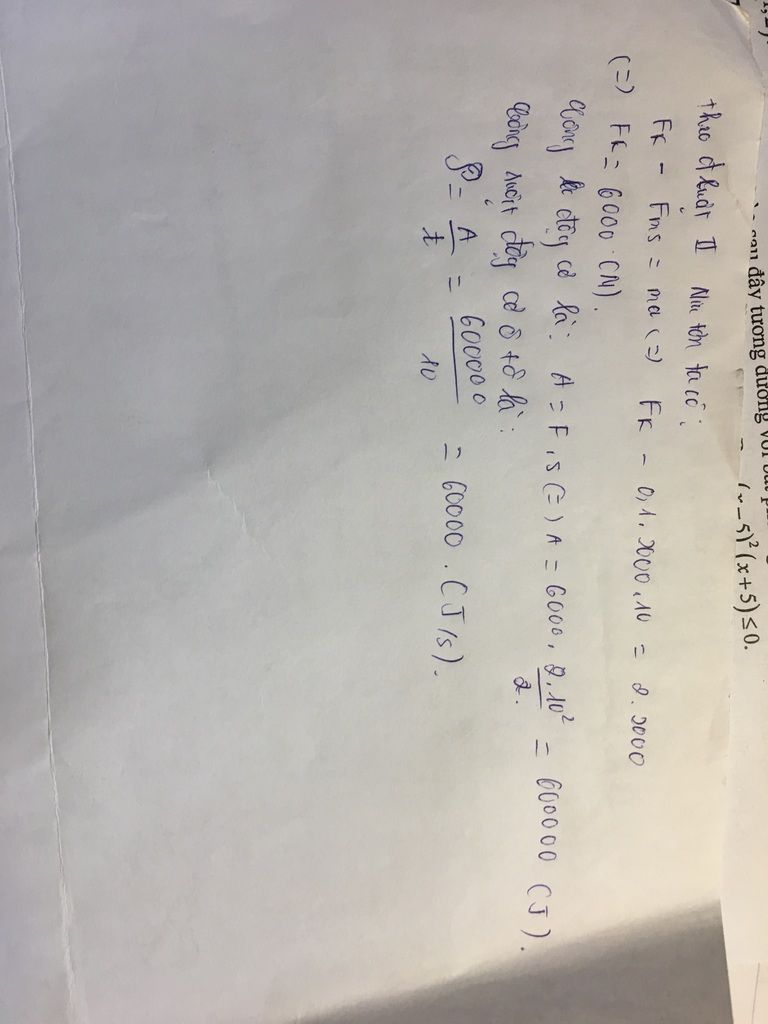 sau đây tương đương với bất
(x − 5)² (x + 5) ≤ 0.
theo đ luật II Niu tơn ta có:
Fk - Fms = ma (=) Fk - 0,1.2000.10 = 2.2000
(=) Fk = 6000 (N).
Công là động cơ là: A = F.s (=) A = 6000. 2.10²/2. = 600000 (J).
Công suất động cơ ô tô là:
P = A/t = 600000/10 = 60000. (J/s).